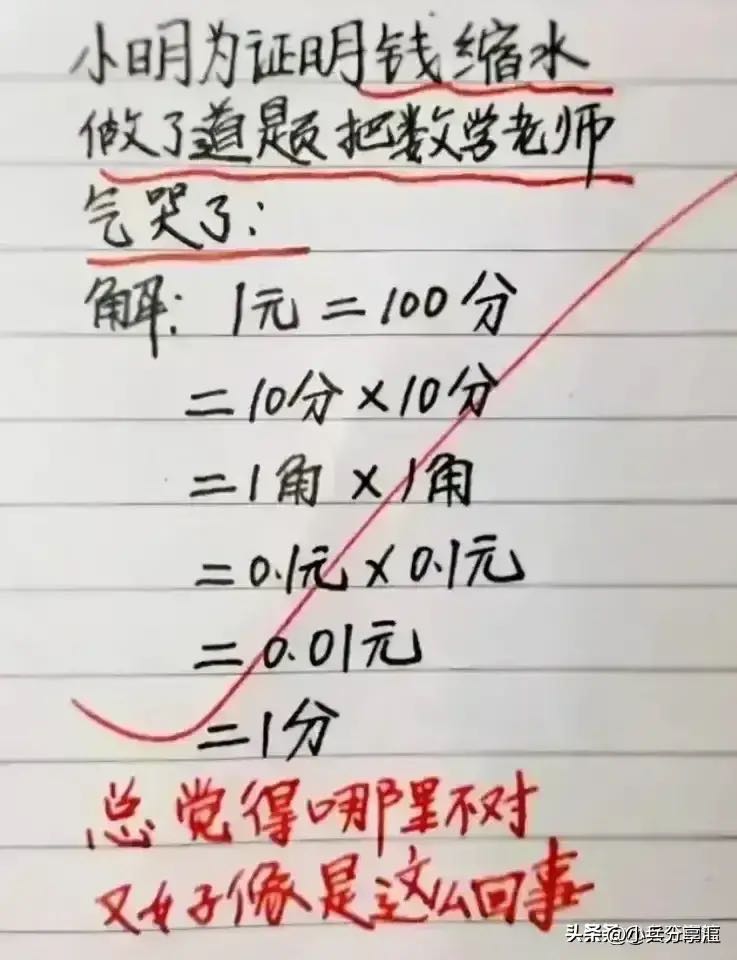 小明为证明钱缩水
做了道题把数学老师
气哭了:
解: 1元=100分
=10分×10分
=1角×1角
=0.1元×0.1元
=0.01元
=1分
总觉得哪里不对
又好像是这么回事